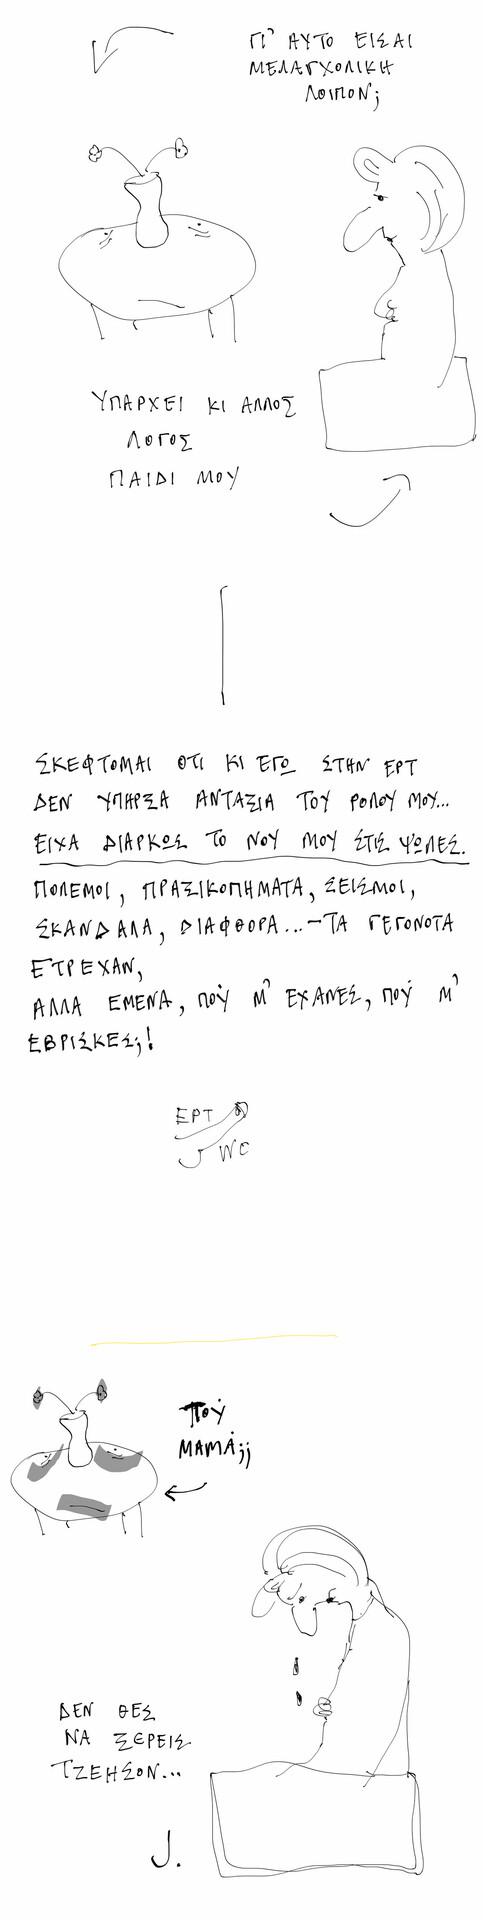 ΓΙ' ΑΥΤΟ ΕΙΣΑΙ
ΜΕΛΑΓΧΟΛΙΚΗ
ΛΟΙΠΟΝ;
ΥΠΑΡΧΕΙ ΚΙ ΑΛΛΟΣ
ΛΟΓΟΣ
ΠΑΙΔΙ ΜΟΥ
ΣΚΕΦΤΟΜΑΙ ΟΤΙ ΚΙ ΕΓΩ ΣΤΗΝ ΕΡΤ
ΔΕΝ ΥΠΗΡΞΑ ΑΝΤΑΞΙΑ ΤΟΥ ΡΟΛΟΥ ΜΟΥ...
ΕΙΧΑ ΔΙΑΡΚΩΣ ΤΟ ΝΟΥ ΜΟΥ ΣΤΙΣ ΨΩΛΕΣ.
ΠΟΛΕΜΟΙ, ΠΡΑΞΙΚΟΠΗΜΑΤΑ, ΣΕΙΣΜΟΙ,
ΣΚΑΝΔΑΛΑ, ΔΙΑΦΘΟΡΑ...-ΤΑ ΓΕΓΟΝΟΤΑ
ΕΤΡΕΧΑΝ,
ΑΛΛΑ ΕΜΕΝΑ, ΠΟΎ Μ' ΕΧΑΝΕΣ, ΠΟΎ Μ'
ΕΒΡΙΣΚΕΣ;!
ΕΡΤ
WC
ΠΟΎ
ΜΑΜΆ;;
ΔΕΝ ΘΕΣ
ΝΑ ΞΕΡΕΙΣ
ΤΖΕΗΣΟΝ...
J.